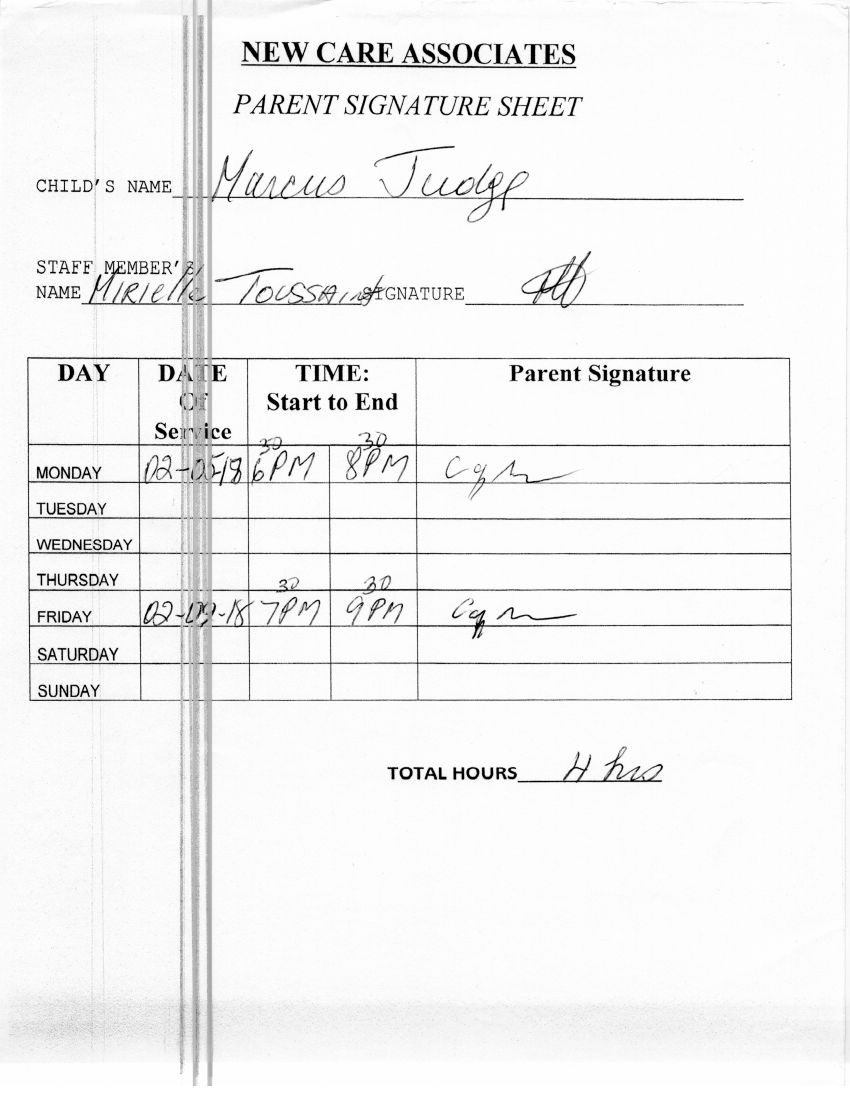 NEW CARE ASSOCIATES
PARENT SIGNATURE SHEET
CHILD'S NAME Marcus Judge
STAFF MEMBER'S
NAME Mirielle Toussaint SIGNATURE
DAY DATE Of Service TIME: Start to End Parent Signature
MONDAY 02-05-18 6 30 PM 8 30 PM
TUESDAY
WEDNESDAY
THURSDAY
FRIDAY 02-09-18 7 30 PM 9 30 PM
SATURDAY
SUNDAY
TOTAL HOURS 4 hrs